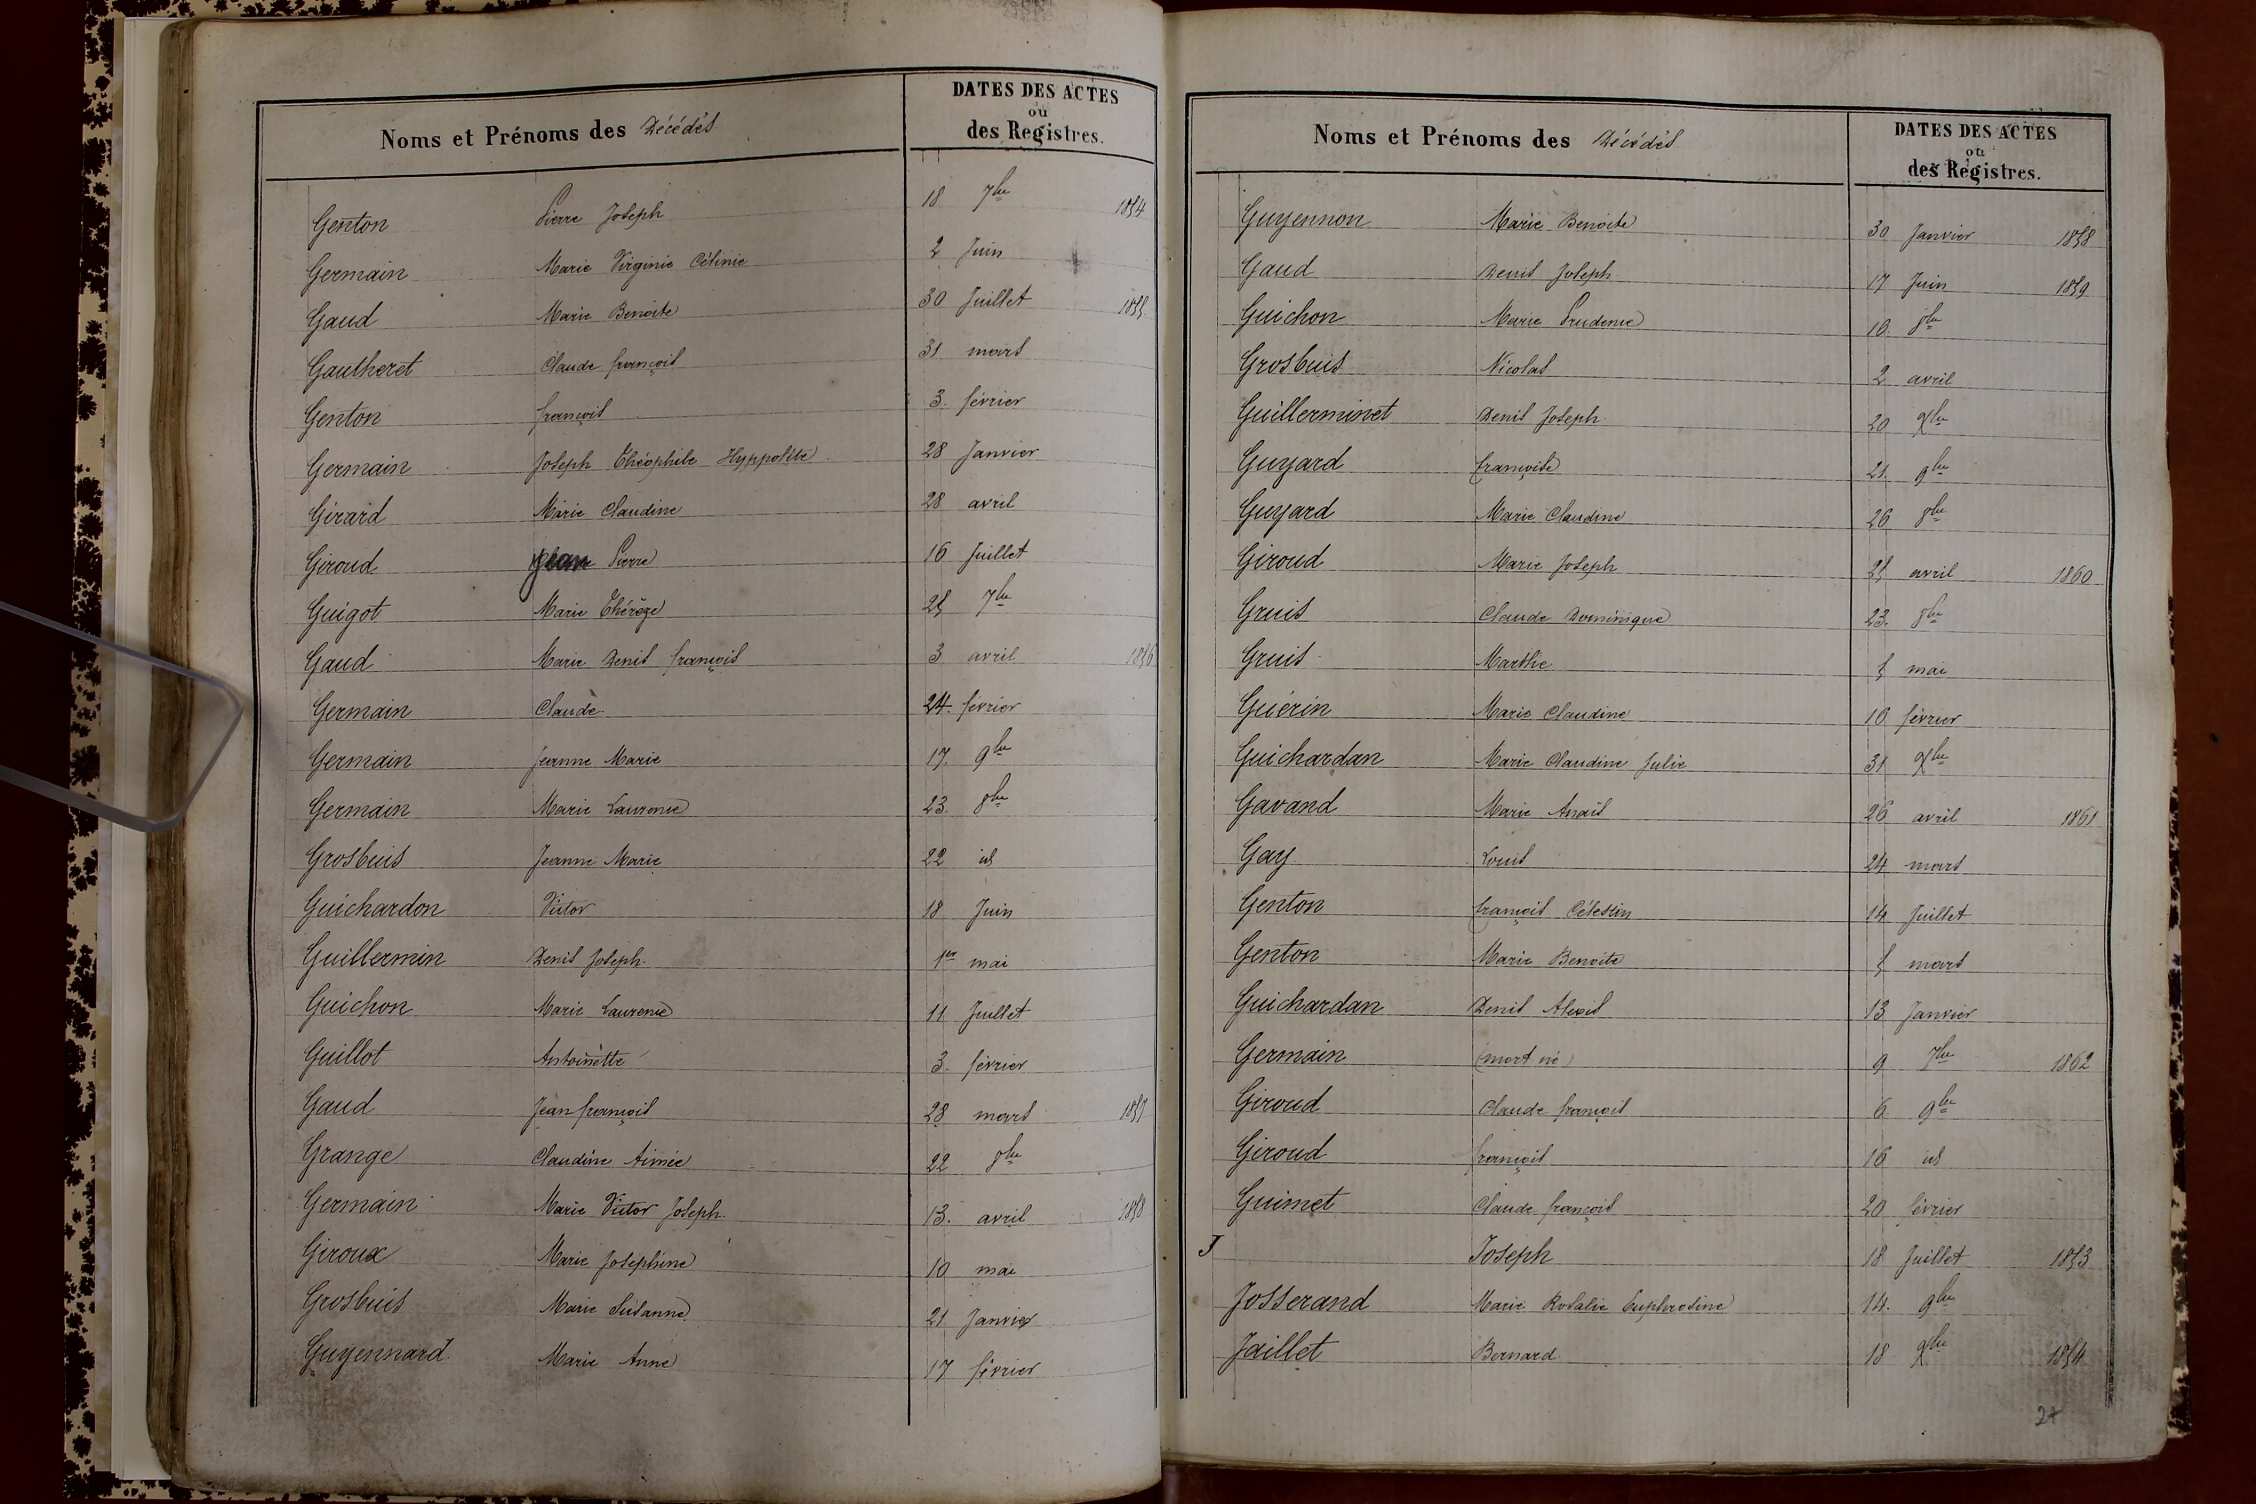 Noms et Prénoms des Décédés
DATES DES ACTES
ou
des Registres.
Genton Pierre Joseph 18 7bre 1854
Germain Marie Virginie Célinie 2 Juin
Gaud Marie Benoite 30 Juillet 1855
Gautheret Claude françois 31 mars
Genton françois 3. février
Germain Joseph Théophile Hyppolite 28 Janvier
Girard Marie Claudine 28 avril
Giroud Jean Pierre 16 Juillet
Guigot Marie Thérèze 25 7bre
Gaud Marie Denis françois 3 avril 1856
Germain Claude 24. février
Germain Jeanne Marie 17. 9bre
Germain Marie Laurence 23. 8bre
Grosbuis Jeanne Marie 22 id
Guichardon Victor 18 Juin
Guillermin Denis Joseph. 1er mai
Guichon Marie Laurence 11 Juillet
Guillot Antoinette 3. février
Gaud Jean françois 28 mars 1857
Grange Claudine Aimée 22 8bre
Germain Marie Victor Joseph. 13. avril 1858
Giroux Marie Joséphine 10 mai
Grosbuis Marie Susanne 21 Janvier
Guyennard Marie Anne 17 février
Noms et Prénoms des Décédés
DATES DES ACTES
ou
des Registres.
Guyennon Marie Benoite 30 Janvier 1858
Gaud Denis Joseph 17 Juin 1859
Guichon Marie Prudence 10. 8bre
Grosbuis Nicolas 2 avril
Guillerminet Denis Joseph 20 Xbre
Guyard françoise 21. 9bre
Guyard Marie Claudine 26 8bre
Giroud Marie Joseph 25 avril 1860
Gruis Claude Dominique 23. 8bre
Gruis Marthe 5 mai
Guérin Marie Claudine 10 février
Guichardan Marie Claudine Julie 31 Xbre
Gavand Marie Anaïs 26 avril 1861
Gay Louis 24 mars
Genton françois Célestin 14 Juillet
Genton Marie Benoite 5 mars
Guichardan Denis Alexis 13 Janvier
Germain (mort né) 9 7bre 1862
Giroud Claude françois 6 9bre
Giroud françois 16 id
Guimet Claude françois 20 février
J Joseph 18 Juillet 1853
Josserand Marie Rosalie Euphrosine 14. 9bre
Jaillet Bernard 18 Xbre 1854
24